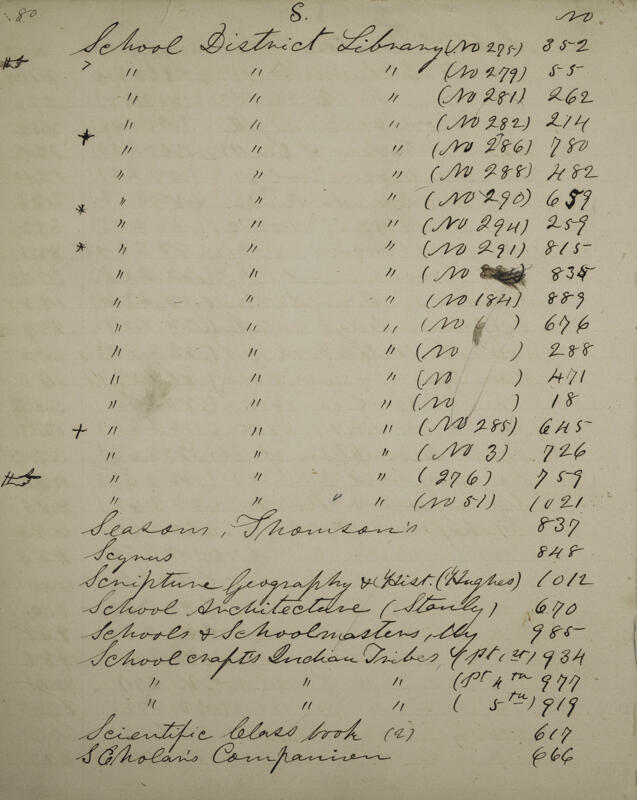 80 S. No
School District Library (No 275) 352
" " " (No 279) 55
" " " (No 281) 262
" " " (No 282) 214
+ " " " (No 286) 780
" " " (No 288) 482
" " " (No 290) 659
* " " " (No 294) 259
* " " " (No 291) 815
" " " (No ) 835
" " " (No 184) 889
" " " (No ) 676
" " " (No ) 288
" " " (No ) 471
" " " (No ) 18
+ " " " (No 285) 645
" " " (No 3) 726
" " " (276) 759
" " " " (No 51) 1021
Seasons, Thomson's 837
Scyrus 848
Scripture Geography & Hist. (Hughes) 1012
School Architecture (Stanly) 670
Schools & Schoolmasters, My 985
Schoolcrafts Indian Tribes (pt 1st) 934
" " " (pt 4th 977
" " " ( 5th) 919
Scientific Class book (2) 617
SCholar's Companion 666